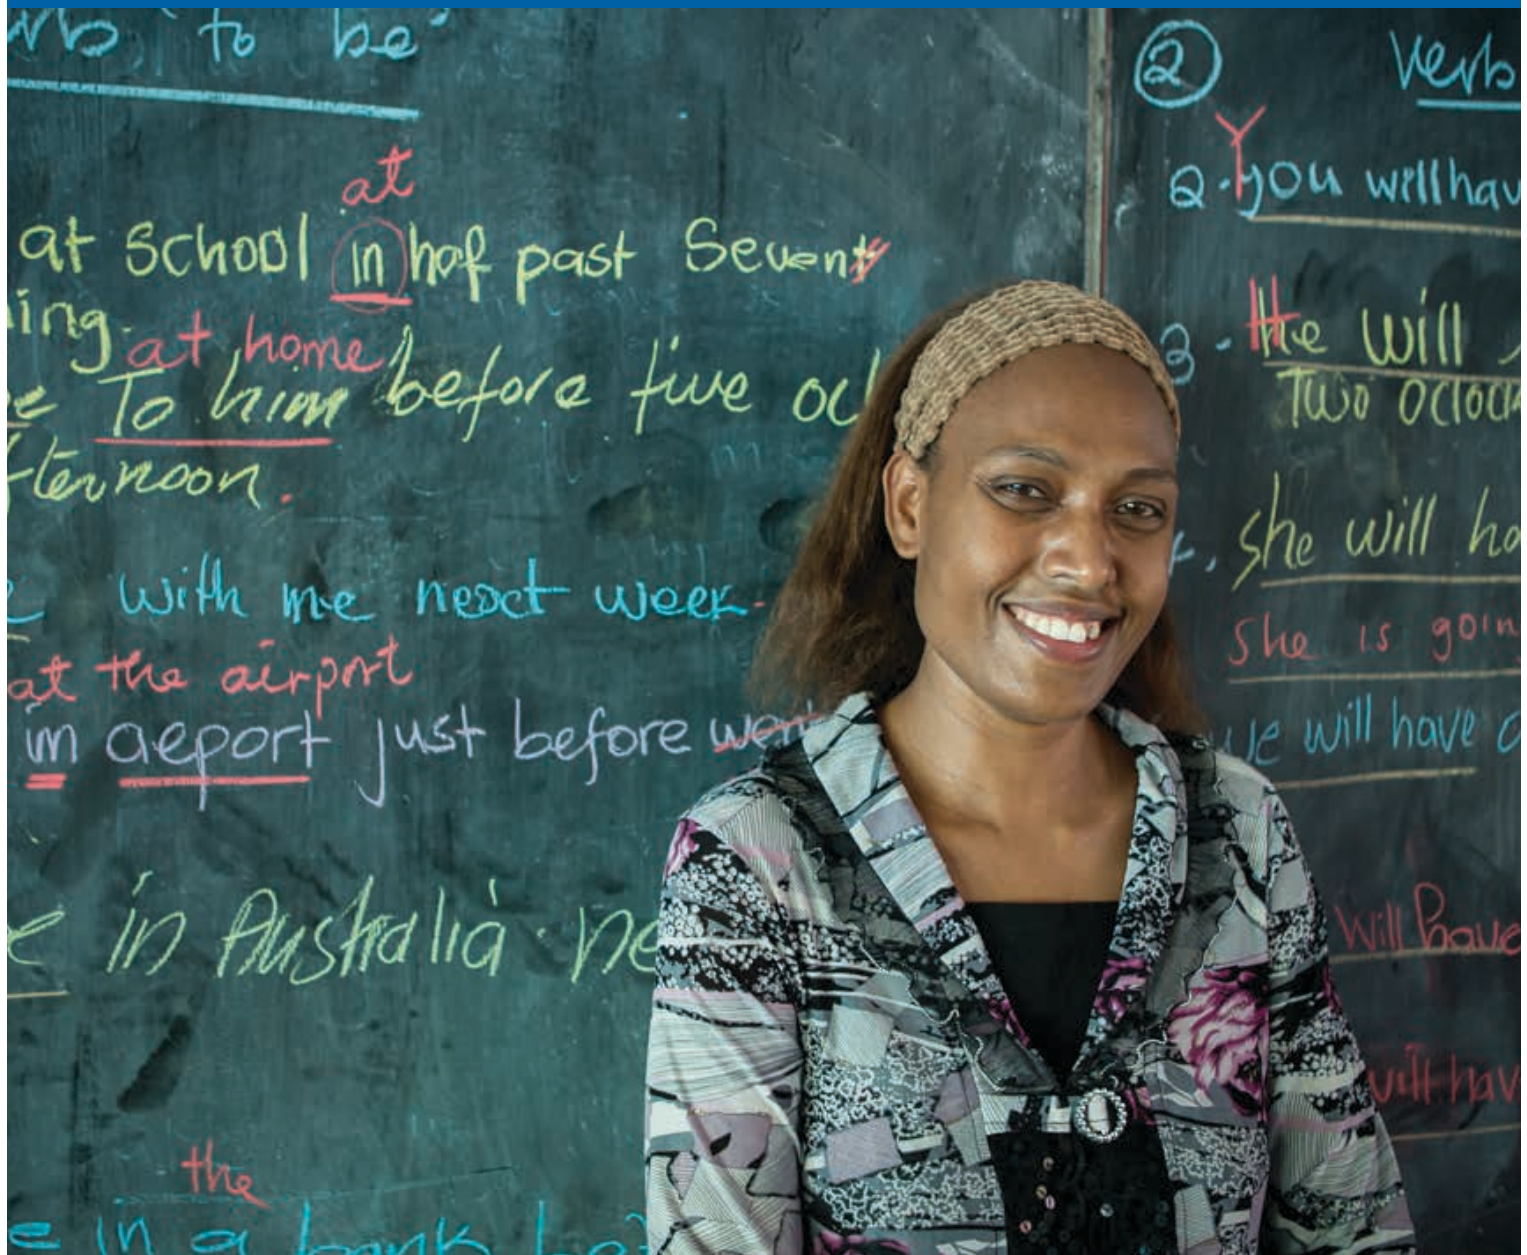 to be
at
at school in hof past Seven
ing.
at home
To him before five
fternoon.
with me nesct week
at the airport
in aeport just before
in Australia
the
in a bank
2 verb
Y
2. you will hav
3. He will
Two oclock
she will ha
she is goin
we will have
will have
will hav